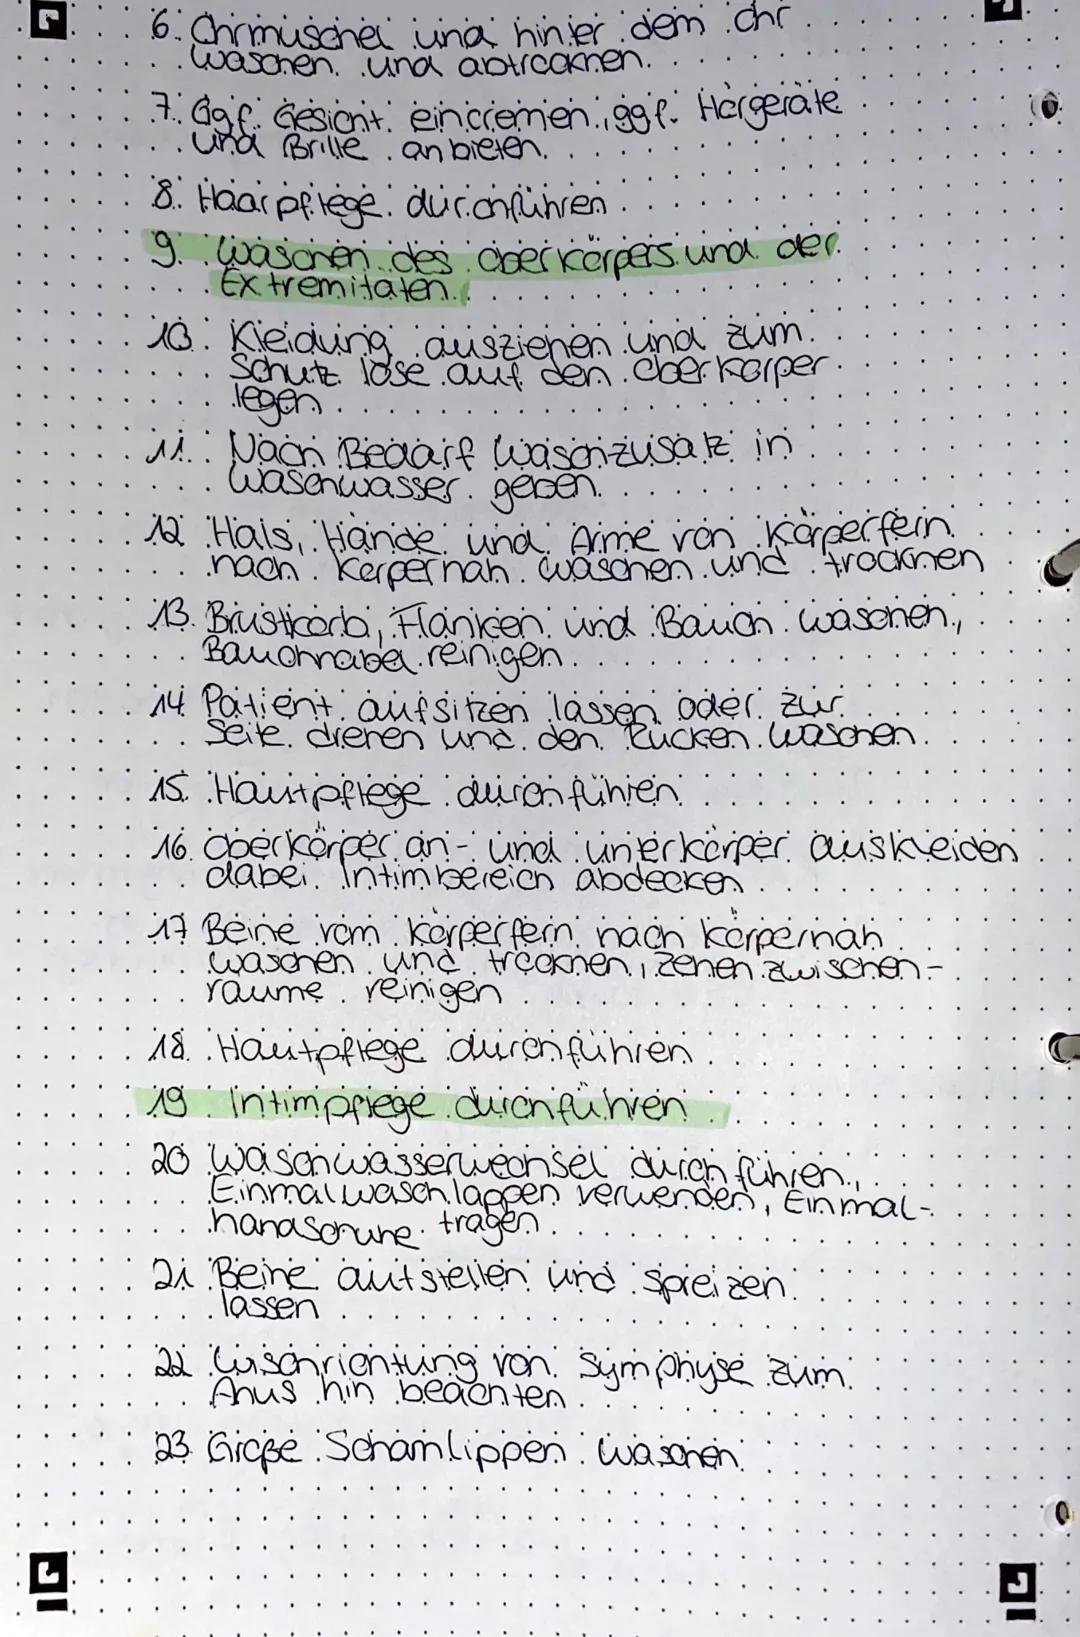 6. Ohrmuschel und hinter dem Ohr
waschen und abtrocknen.
7. Ggf. Gesicht eincremen, ggf. Hörgeräte
und Brille anbieten.
8. Haarpflege durchführen
9. Waschen des Oberkörpers und der
Extremitäten.
10. Kleidung ausziehen und zum
Schutz lose auf den Oberkörper
legen
11. Nach Bedarf Waschzusatz in
Waschwasser geben.
12 Hals, Hände und Arme von Körperfern
nach Körpernah waschen und trocknen
13. Brustkorb, Flanken und Bauch waschen,
Bauchnabel reinigen
14 Patient aufsitzen lassen oder zur
Seite drehen und den Rücken waschen
15. Hautpflege durchführen
16. Oberkörper an- und unterkörper auskleiden
dabei Intimbereich abdecken
17 Beine vom Körperfern nach körpernah
waschen und trocknen, zehen zwischen-
räume reinigen
18. Hautpflege durchführen
19 Intimpflege durchführen
20 Waschwasserwechsel durchführen,
Einmalwaschlappen verwenden, Einmal-
handschuhe tragen
21 Beine aufstellen und spreizen
lassen
22 Wischrichtung von Symphyse zum
Anus hin beachten
23. Große Schamlippen waschen